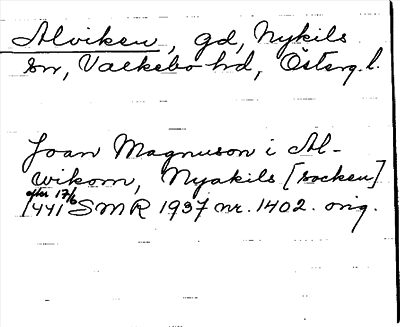 Alviken, gd, Nykils
sn, Valkebo hd, Österg. l.
Joan Magnuson i Al-
wikom, Nyakils [socken]
efter 17/6
1441 SMR 1937 nr. 1402. orig.